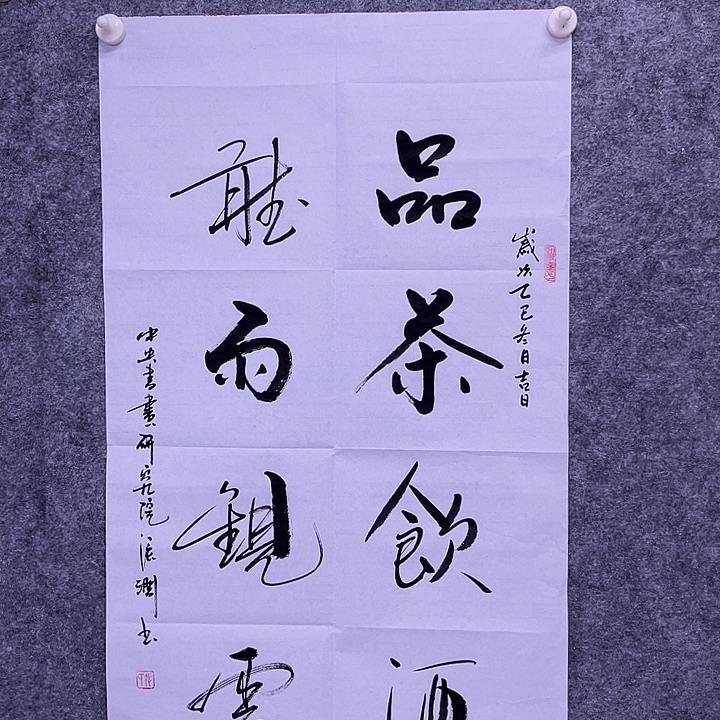 歲次乙巳冬日吉日
品茶飲酒
聽雨觀雲
中央書畫研究院張淵書